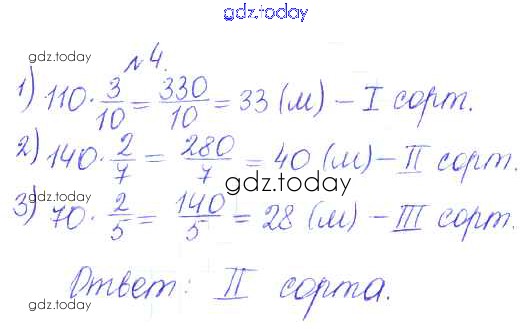 gdz.today
gdz.today
gdz.today
№ 4.
1) 110 · 3/10 = 330/10 = 33 (м) – I сорт.
2) 140 · 2/7 = 280/7 = 40 (м) – II сорт.
gdz.today
3) 70 · 2/5 = 140/5 = 28 (м) – III сорт.
Ответ: II сорта.
gdz.today
gdz.today